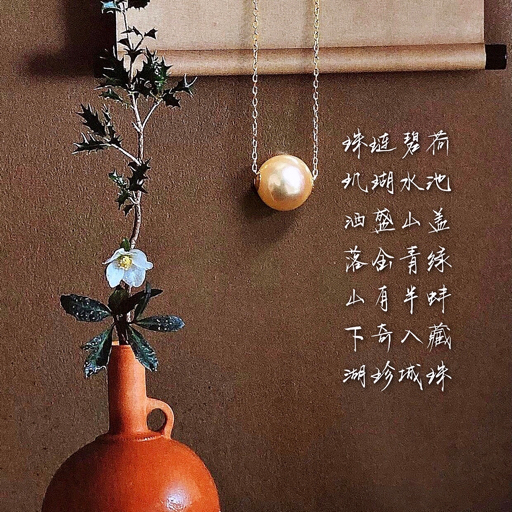 珠琏碧荷
玑瑚水池
洒盛山盖
落金青绿
山有半蚌
下奇入藏
湖珍城珠